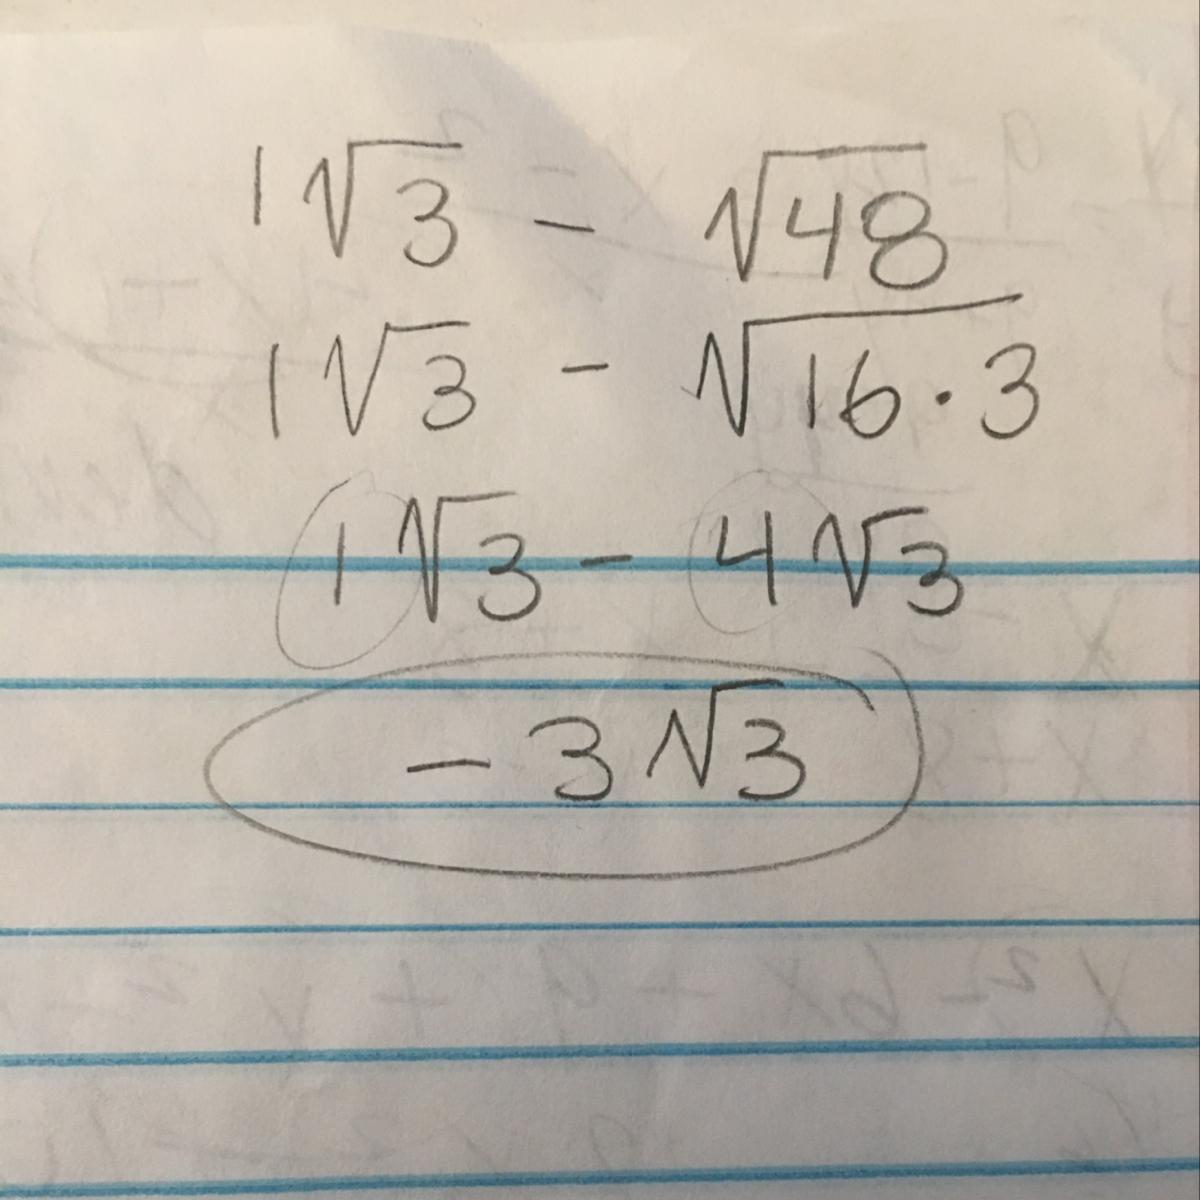 1√3 - √48
1√3 - √16·3
1√3 - 4√3
-3√3